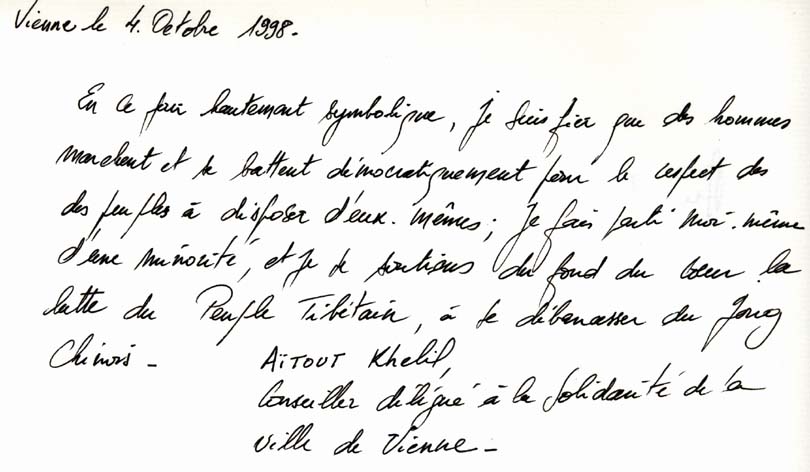 Vienne le 4. Octobre 1998.
En ce jour hautement symbolique, je suis fier que des hommes
marchent et se battent démocratiquement pour le respect des
des peuples à disposer d'eux-mêmes; je fais parti moi-même
d'une minorité, et je soutiens du fond du coeur la
lutte du Peuple Tibétain, à se débarrasser du Joug
Chinois -
AÏTOUT Khelil,
Conseiller délégué à la Solidarité de la
Ville de Vienne -